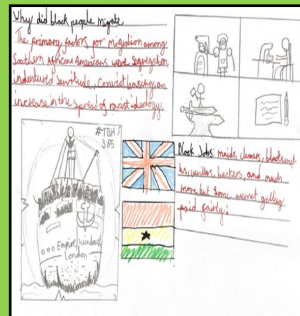 Why did black people migrate
The primary factors for migration among
Southern African Americans were segregation
indentured servitude, convict leasing, an
increase in the spread of racist ideology.
#TBH
365
Empire Windrush
London
jobs maids, cleaners, blacksmit
hs, writers, and much
more but some weren't getting
paid fairly.